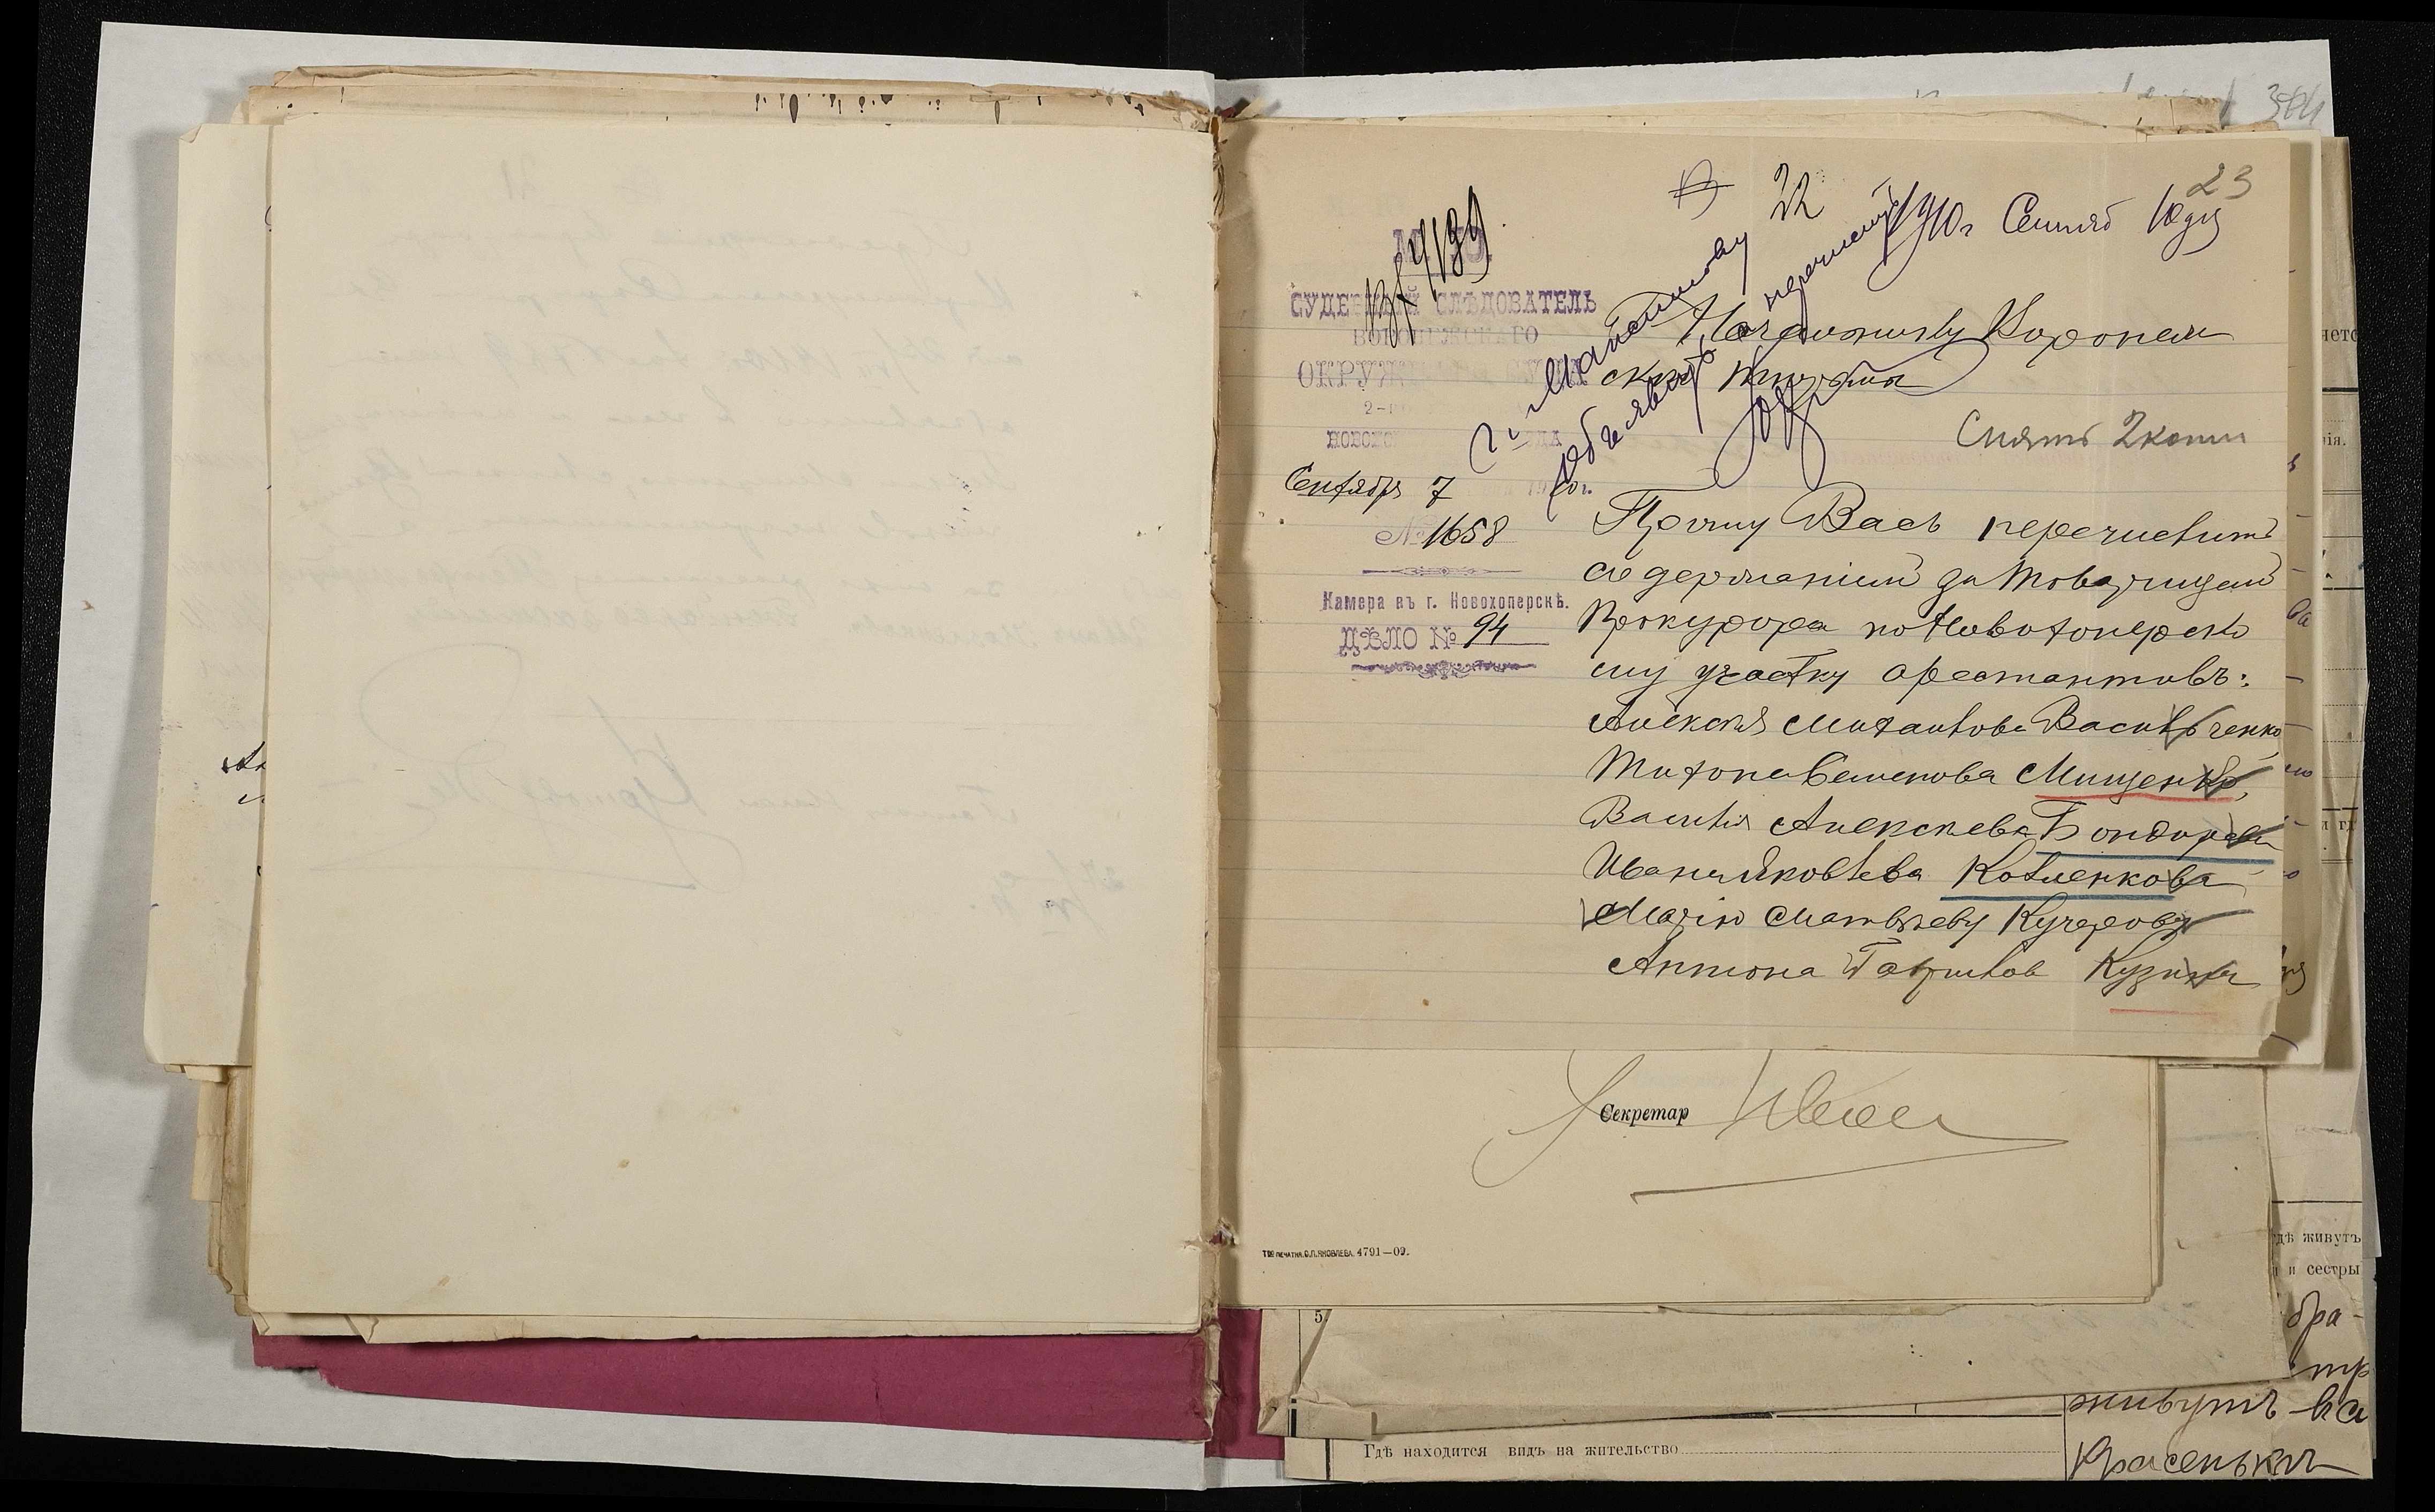 22
23
1910 г Сентяб 10 дня
№ 4139
М. Ю.
СУДЕБНЫЙ СЛѢДОВАТЕЛЬ
ВОРОНЕЖСКАГО
ОКРУЖНАГО СУДА
Сентября 7
1910 г.
№ 1658
Камера въ г. Новохоперскѣ.
ДѢЛО № 94
Начальнику Воронеж
ской тюрьмы
Снять 2 копии
Прошу Васъ перечислить
содержаніемъ за Товарищемъ
Прокурора по Новохоперско
му участку арестантовъ:
Алексѣя Михайлова Васильченко
Тихона Семенова Мищенко,
Василія Алексѣева Бондарева
Ивана Яковлева Котленкова
Марію Матвѣеву Кучерову
Антона Гаврилов Кузина
Секретар
Т-ВО ПЕЧАТНИ С.П. ЯКОВЛЕВА. 4791—09.
5
дѣ живутъ
и сестры
бра-
живутъ въ
Гдѣ находится видъ на жительство